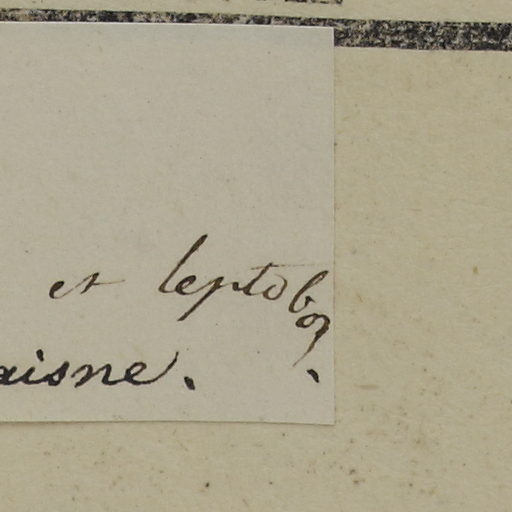 et leptobo
aisne.